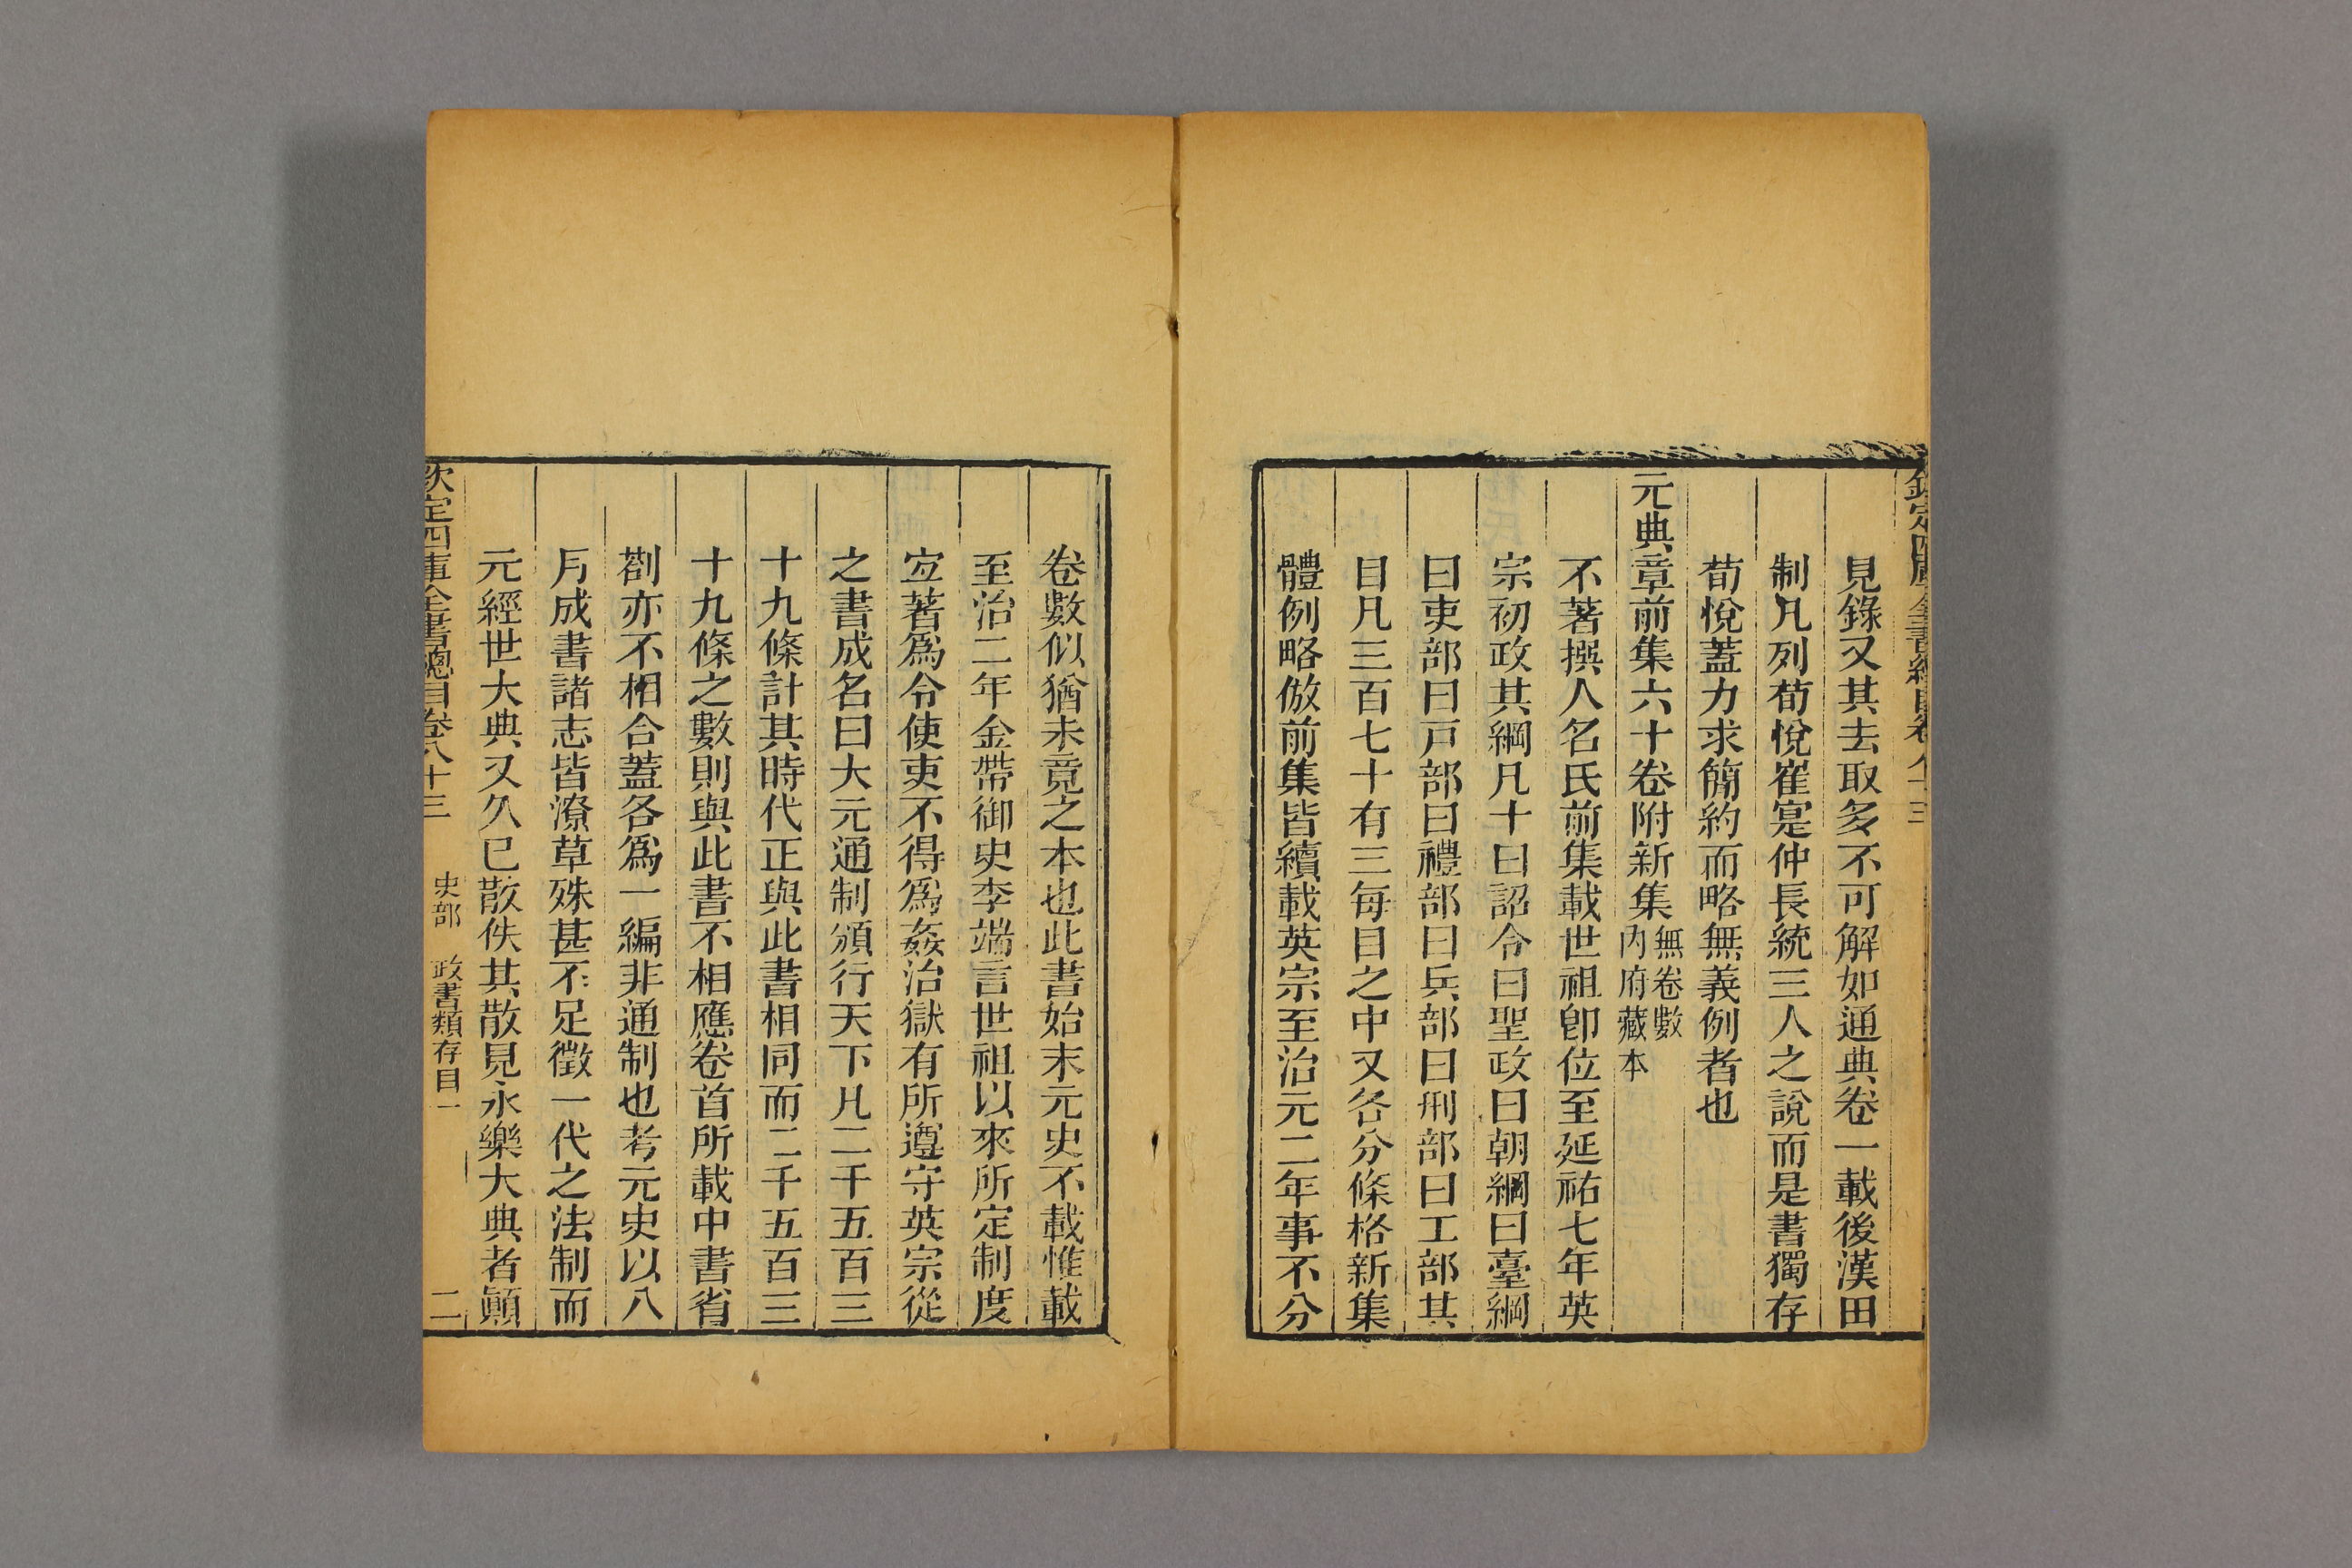 見錄又其去取多不可解如通典卷一載後漢田
制凡列荀悅崔寔仲長統三人之說而是書獨存
荀悅蓋力求簡約而略無義例者也
元典章前集六十卷附新集無卷數
內府藏本
不著撰人名氏前集載世祖卽位至延祐七年英
宗初政其綱凡十曰詔令曰聖政曰朝綱曰臺綱
曰吏部曰戸部曰禮部曰兵部曰刑部曰工部其
目凡三百七十有三每目之中又各分條格新集
體例略倣前集皆續載英宗至治元二年事不分
卷數似猶未竟之本也此書始末元史不載惟載
至治二年金帶御史李端言世祖以來所定制度
宜著爲令使吏不得爲姦治獄有所遵守英宗從
之書成名曰大元通制頒行天下凡二千五百三
十九條計其時代正與此書相同而二千五百三
十九條之數則與此書不相應卷首所載中書省
劄亦不相合蓋各爲一編非通制也考元史以八
月成書諸志皆潦草殊甚不足徵一代之法制而
元經世大典又久已散佚其散見永樂大典者顚
欽定四庫全書總目卷八十三 史部 政書類存目一 二